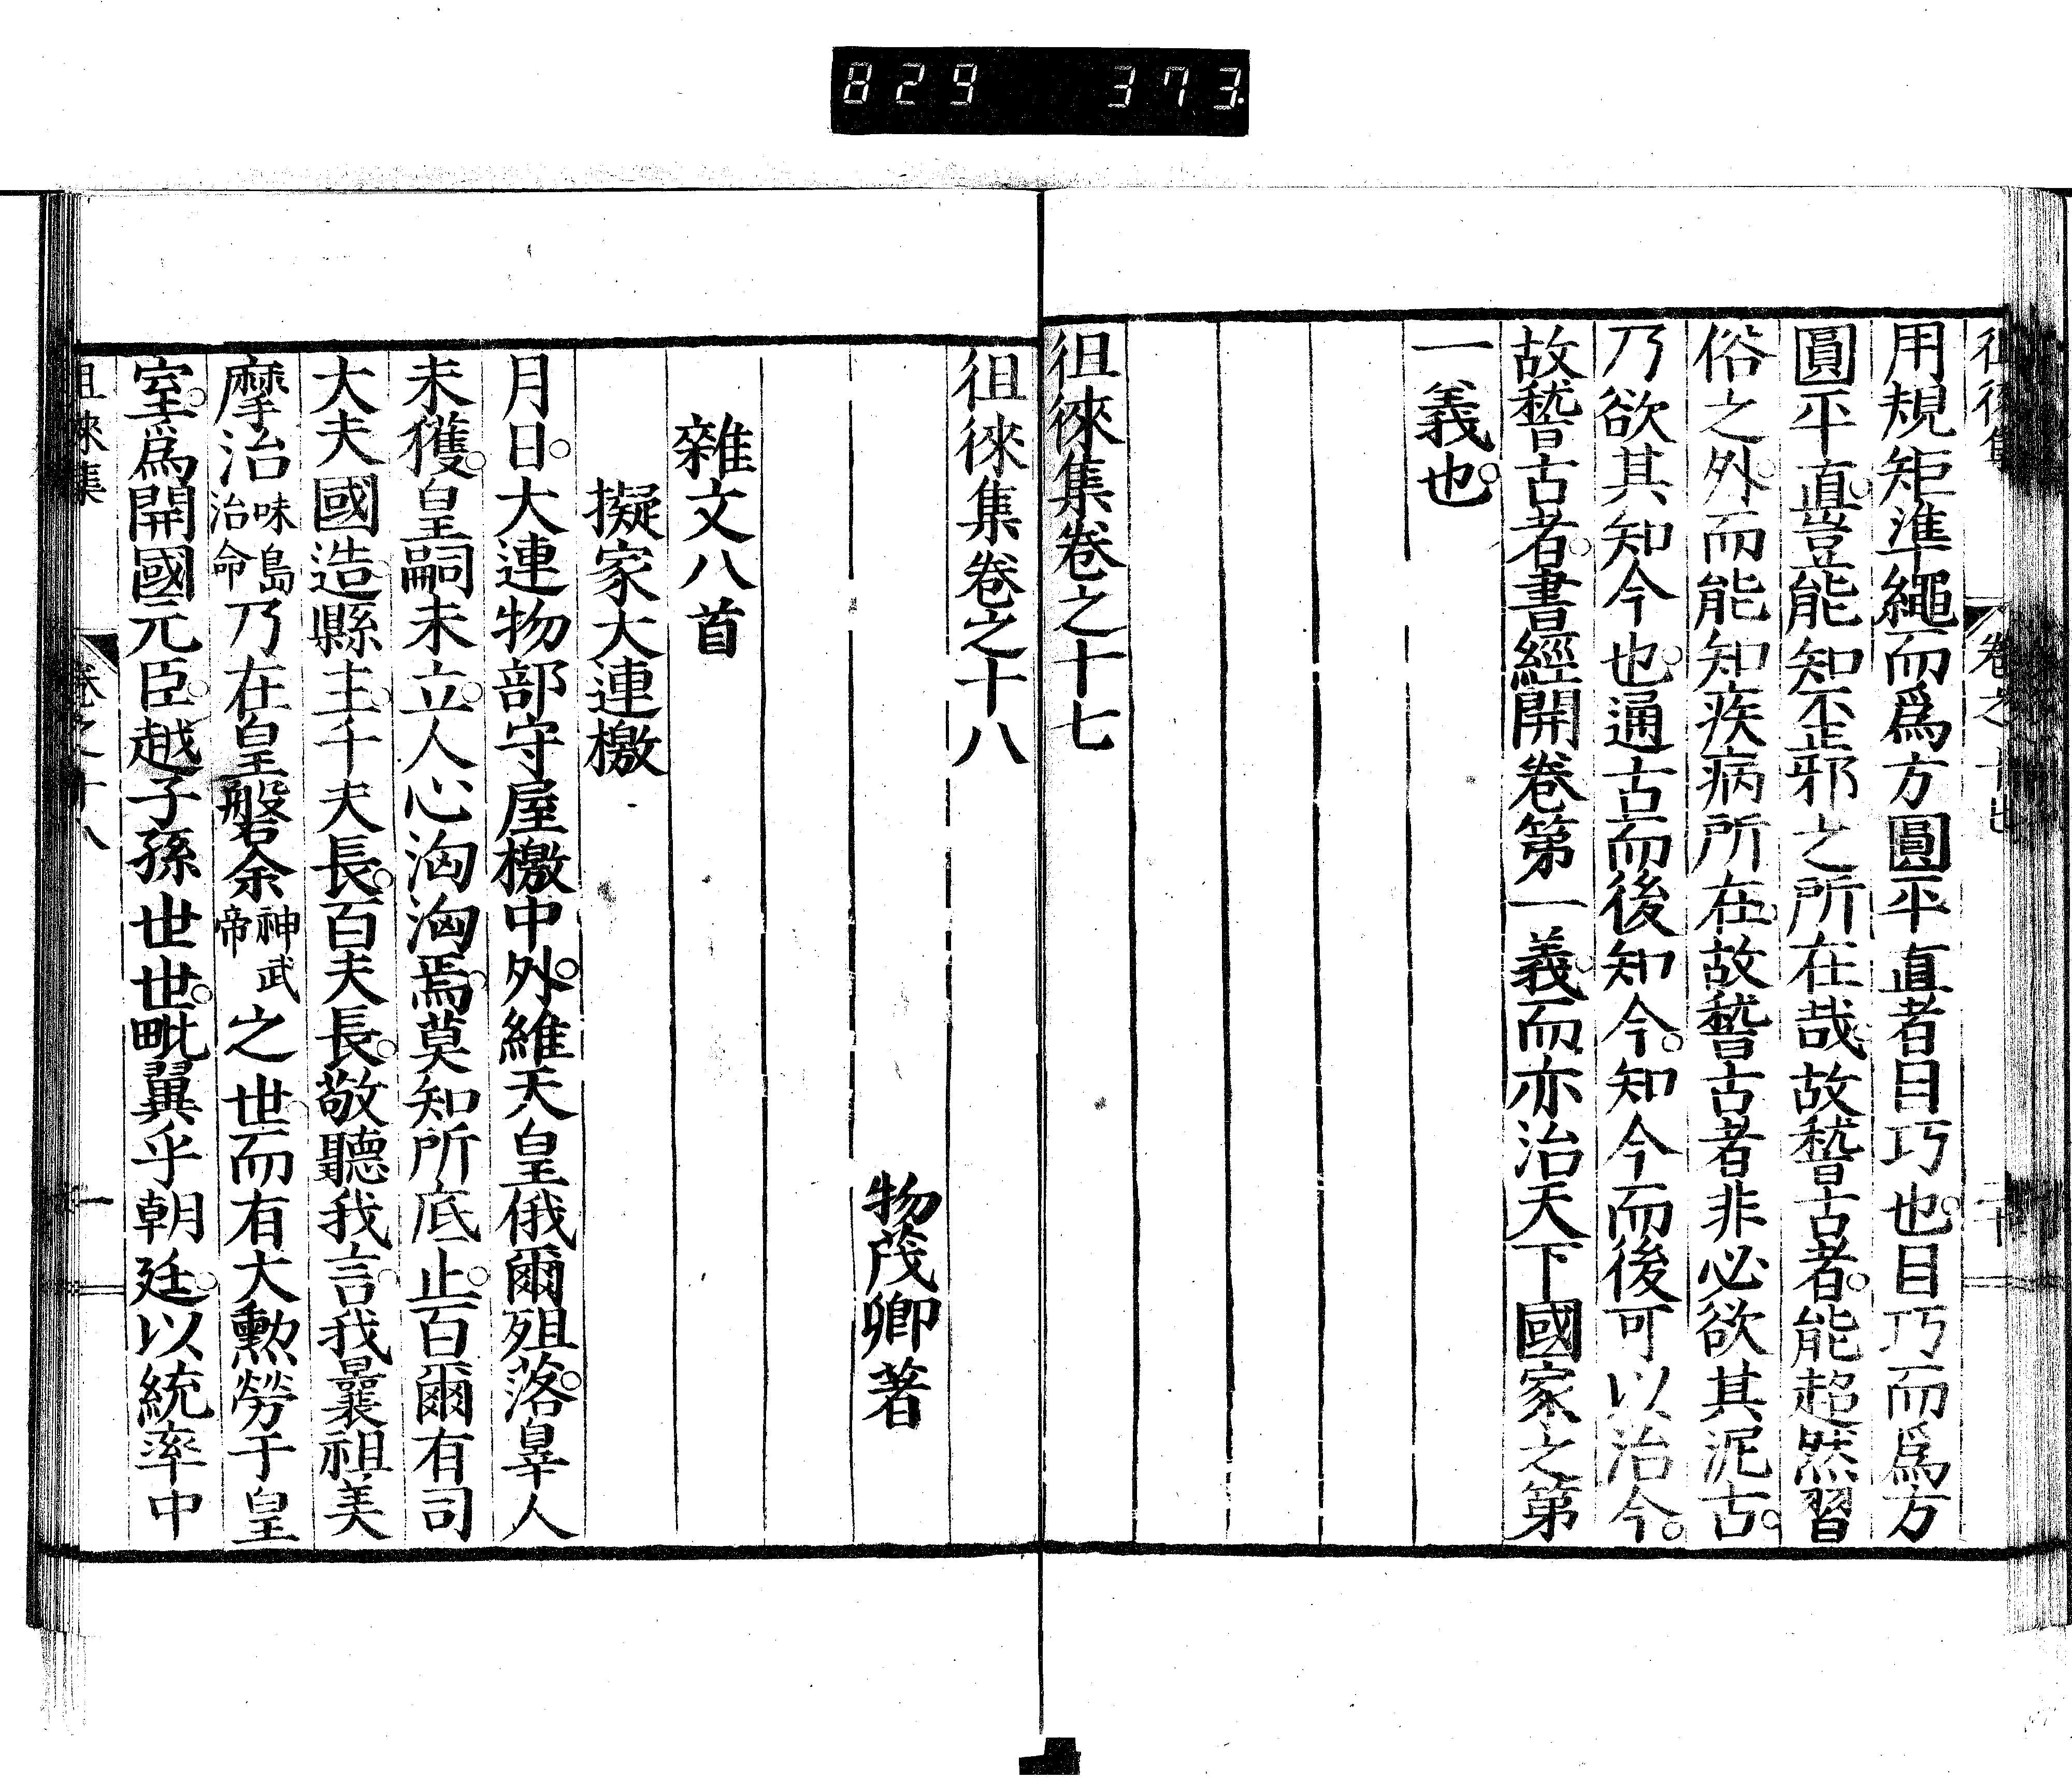 829 373.
用規矩準繩而爲方圓平直者目巧也。目巧而爲方
圓平直。豈能知不正邪之所在哉。故稽古者。能超然習
俗之外。而能知疾病所在。故稽古者非必欲其泥古。
乃欲其知今也。通古而後知今。知今而後可以治今。
故稽古者。書經開卷第一義。而亦治天下國家之第
一義也。
徂徠集卷之十七
徂徠集卷之十八
物茂卿著
雜文八首
擬家大連檄
月日。大連物部守屋檄中外。維天皇俄爾殂落。辠人
未獲。皇嗣未立。人心洶洶焉。莫知所底止。百爾有司
大夫國造縣主。千夫長。百夫長。敬聽我言。我曩祖美
摩治味島治命乃在皇磐余神武帝之世。而有大勲勞于皇
室。爲開國元臣。越子孫世世。毗翼乎朝廷。以統率中
徂徠集 卷之十八 一